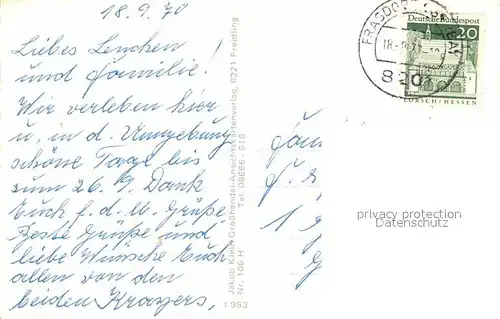 18.9.70
Liebes Lenchen
und Familie!
Wir verleben hier
u. in d. Umgebung
schöne Tage bis
zum 26.9. Dank
Euch f. d. lb. Grüße.
Beste Grüße und
liebe Wünsche Euch
allen von den
beiden Krayers.
Jakob Klein Großhandel-Ansichtskartenverlag, 8221 Freidling
Tel. 08666-518
Nr. 106 H
1963
FRASDORF
18.-9.70
8201
Deutsche Bundespost
20
LORSCH/HESSEN
privacy protection
Datenschutz